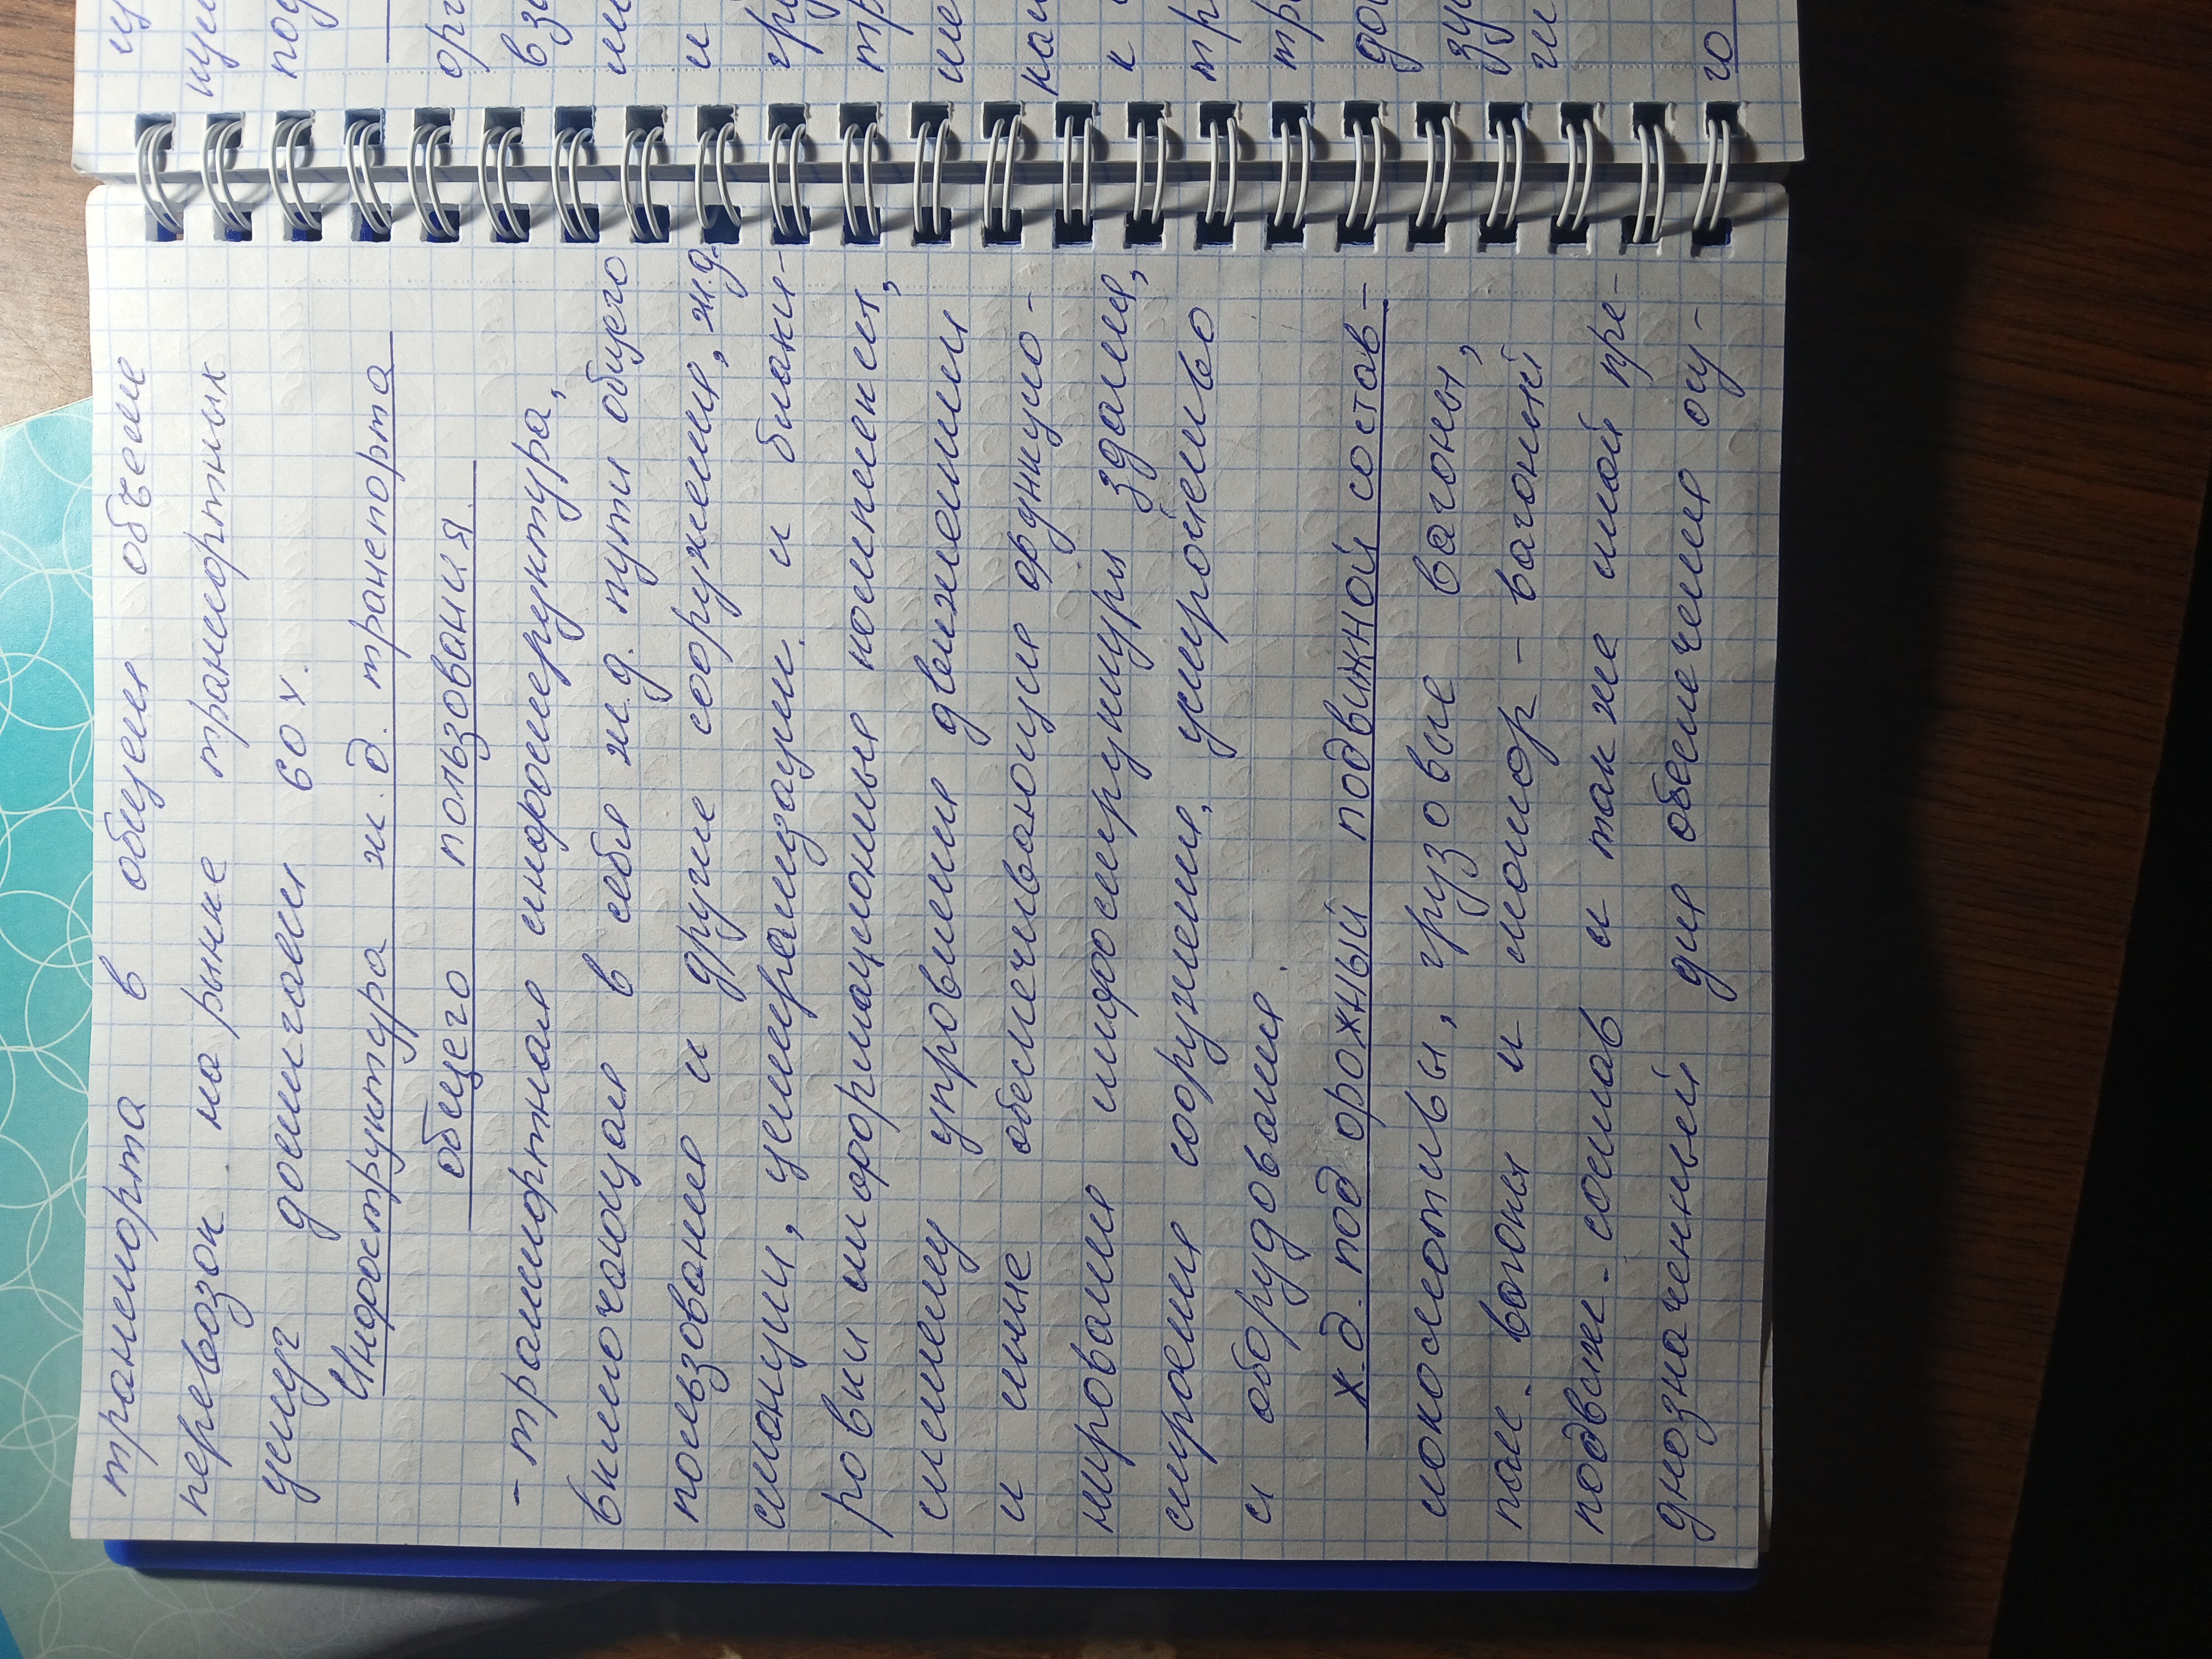 транспорта в общем объеме
перевозок на рынке транспортных
услуг достигает 60 %.
Инфраструктура ж.д. транспорта
общего пользования
- транспортная инфраструктура,
включающая в себя ж.д. пути общего
пользования и другие сооружения, ж.д.
станции, централизации и блоки-
ровки информационный комплекс,
систему управления движением
и иные обеспечивающие функцио-
нирование инфраструктуры здания,
строения сооружения, устройство
и оборудования.
Ж.д. под орожный подвижной состав -
локомотивы, грузовые вагоны,
пас. вагоны и мотор - вагоный
подвиж. состав и также иной пре-
дназначенный для обеспечения осу-
ц
щи
под
орг
вза
и
гру
тр
к
тр
тр
до
го